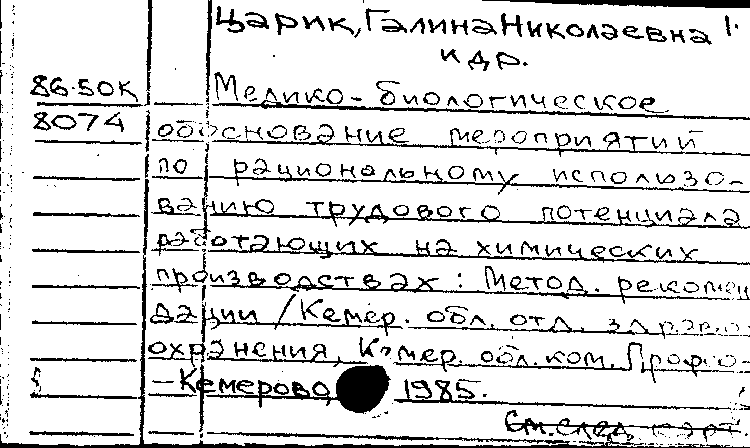 Царик, Галина Николаевна
и др.
86-50К Медико-биологическое
8074 обоснование мероприятий
по рациональному использо-
ванию трудового потенциала
работающих на химических
производствах: Метод. рекомен
дации / Кемер. обл. отд. здраво
охранения, Кемер. обл. ком. Профсо-
- Кемерово, 1985.
См. след. карт